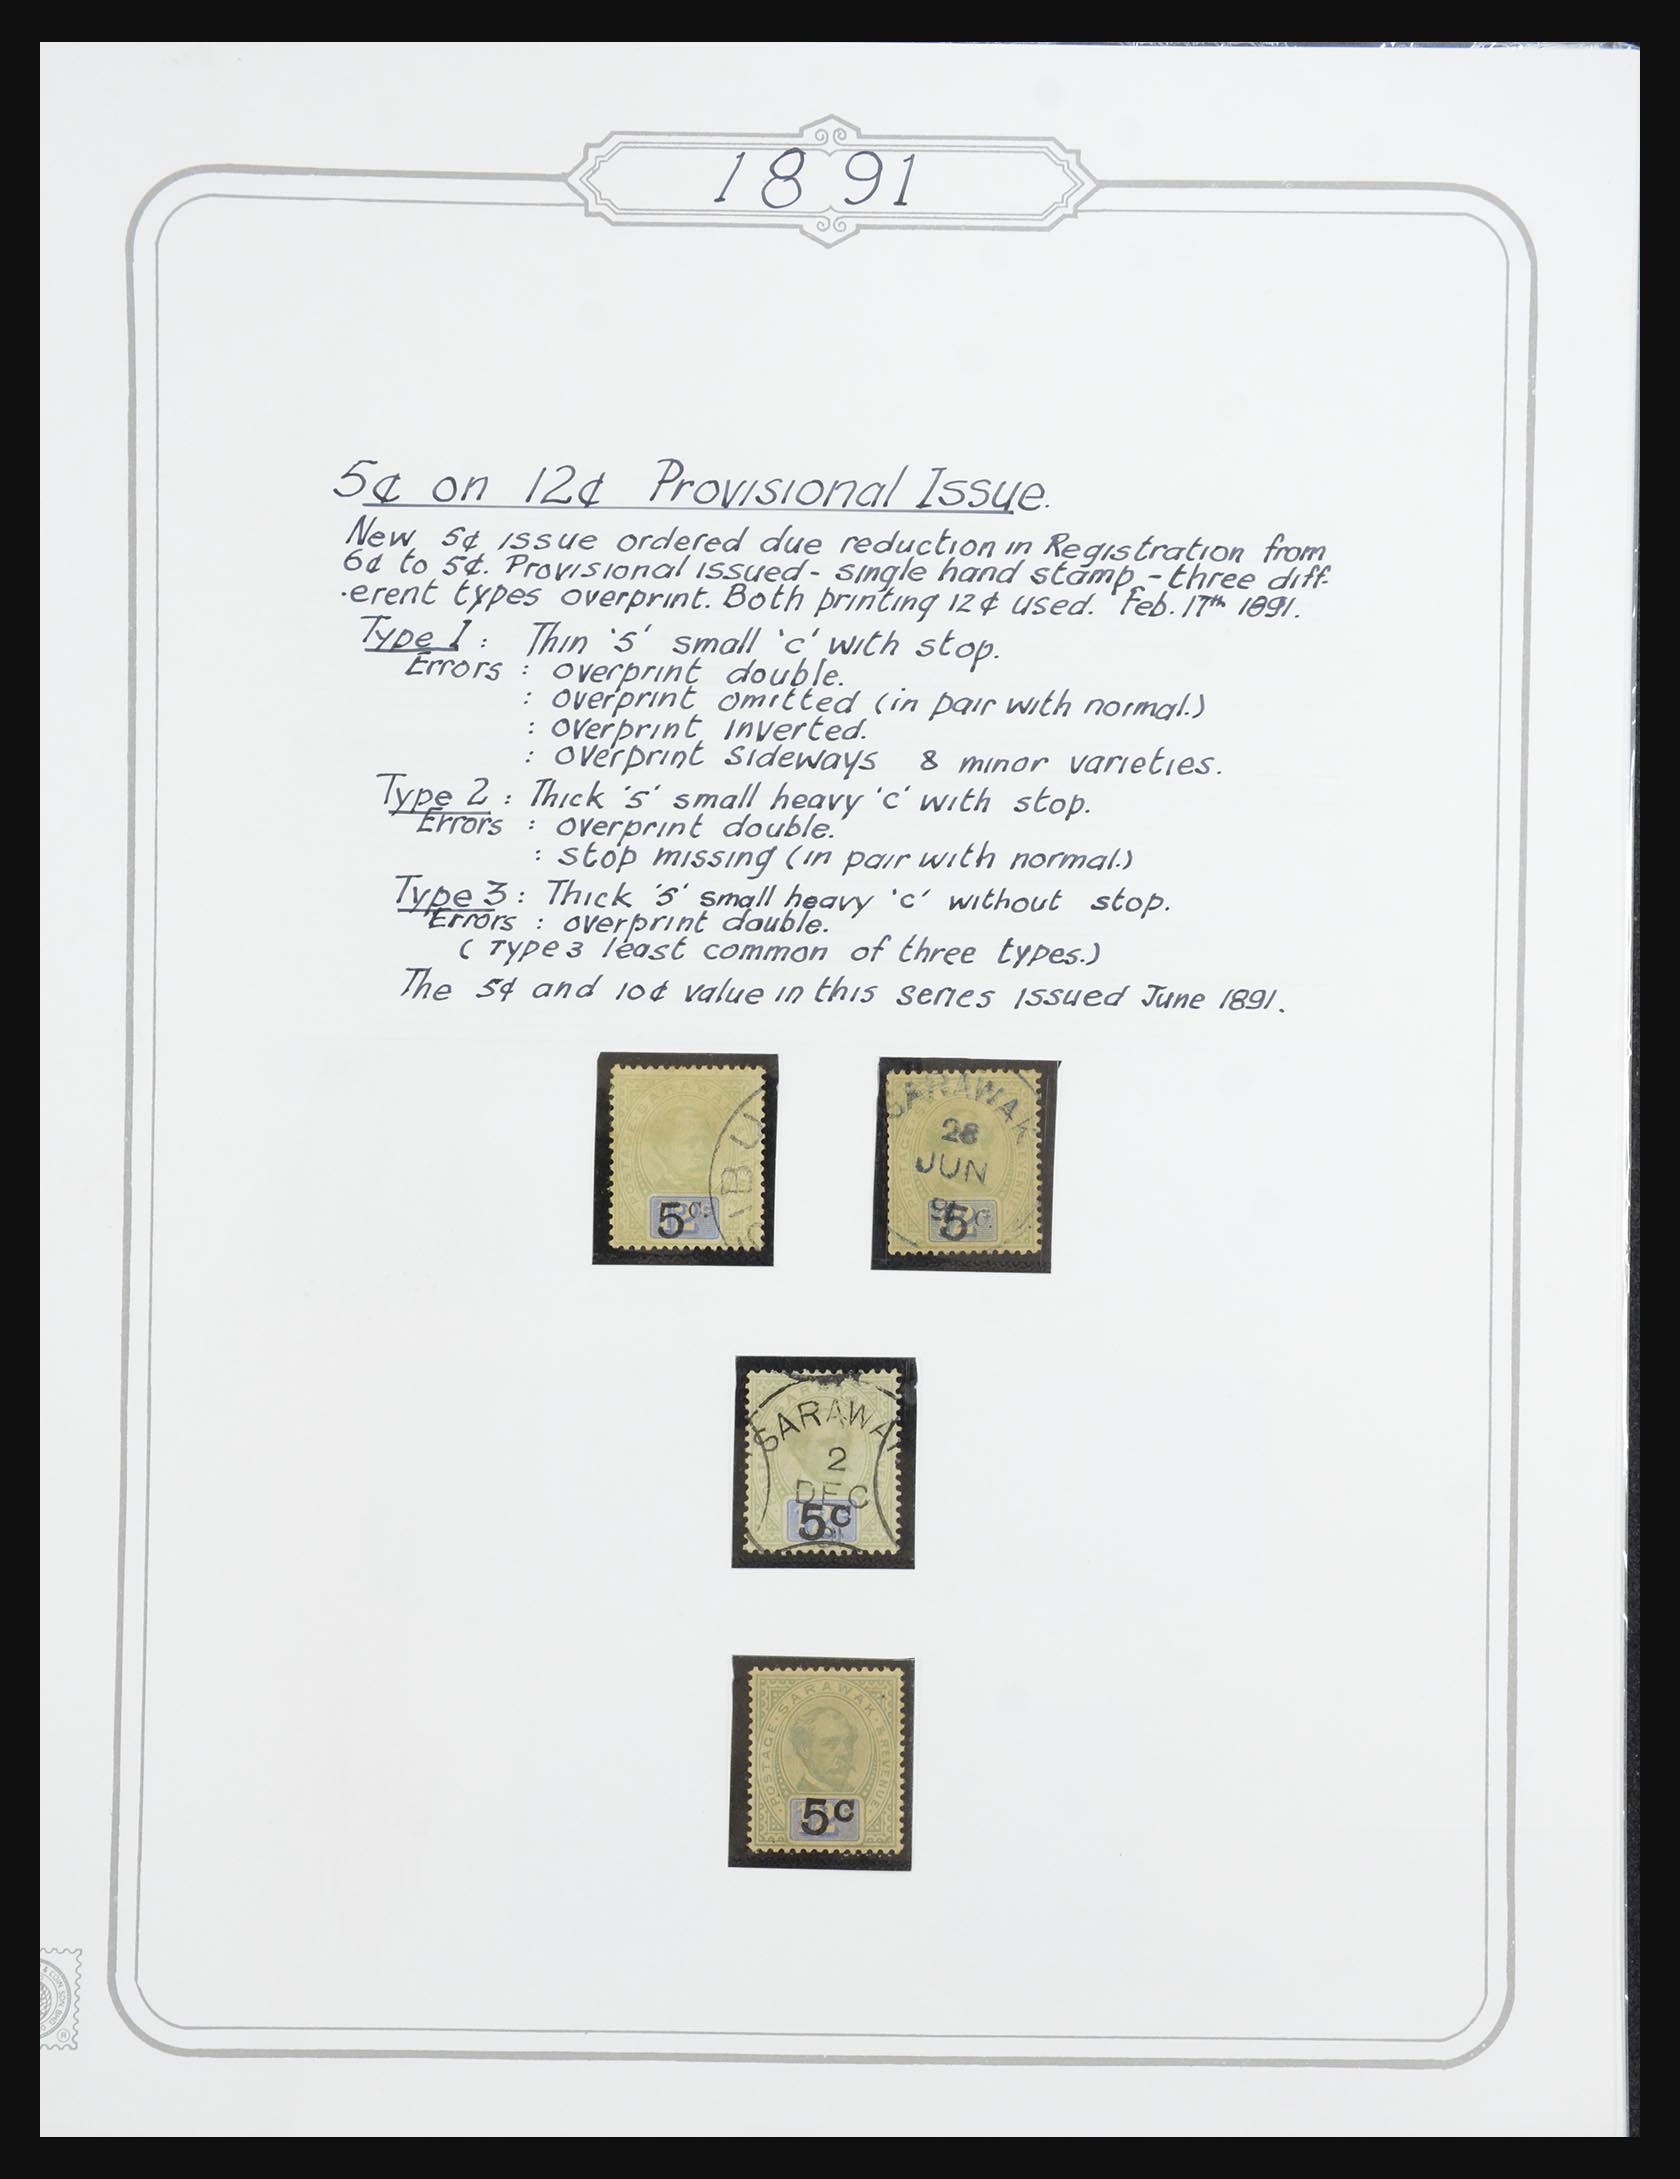 1891
5¢ on 12¢ Provisional Issue.
New 5¢ issue ordered due reduction in Registration from
6¢ to 5¢. Provisional issued - single hand stamp - three diff-
erent types overprint. Both printing 12¢ used. Feb. 17th 1891.
Type 1 : Thin '5' small 'c' with stop.
Errors : overprint double.
: overprint omitted (in pair with normal.)
: overprint inverted.
: overprint sideways & minor varieties.
Type 2 : Thick '5' small heavy 'c' with stop.
Errors : overprint double.
: stop missing (in pair with normal.)
Type 3 : Thick '5' small heavy 'c' without stop.
Errors : overprint double.
( Type 3 least common of three types.)
The 5¢ and 10¢ value in this series issued June 1891.
POSTAGE
5c.
SIBU
SARAWAK
28
JUN
5c.
SARAWAK
2
DEC
5c
POSTAGE · SARAWAK · & REVENUE
5c
& COIN SDN BHD